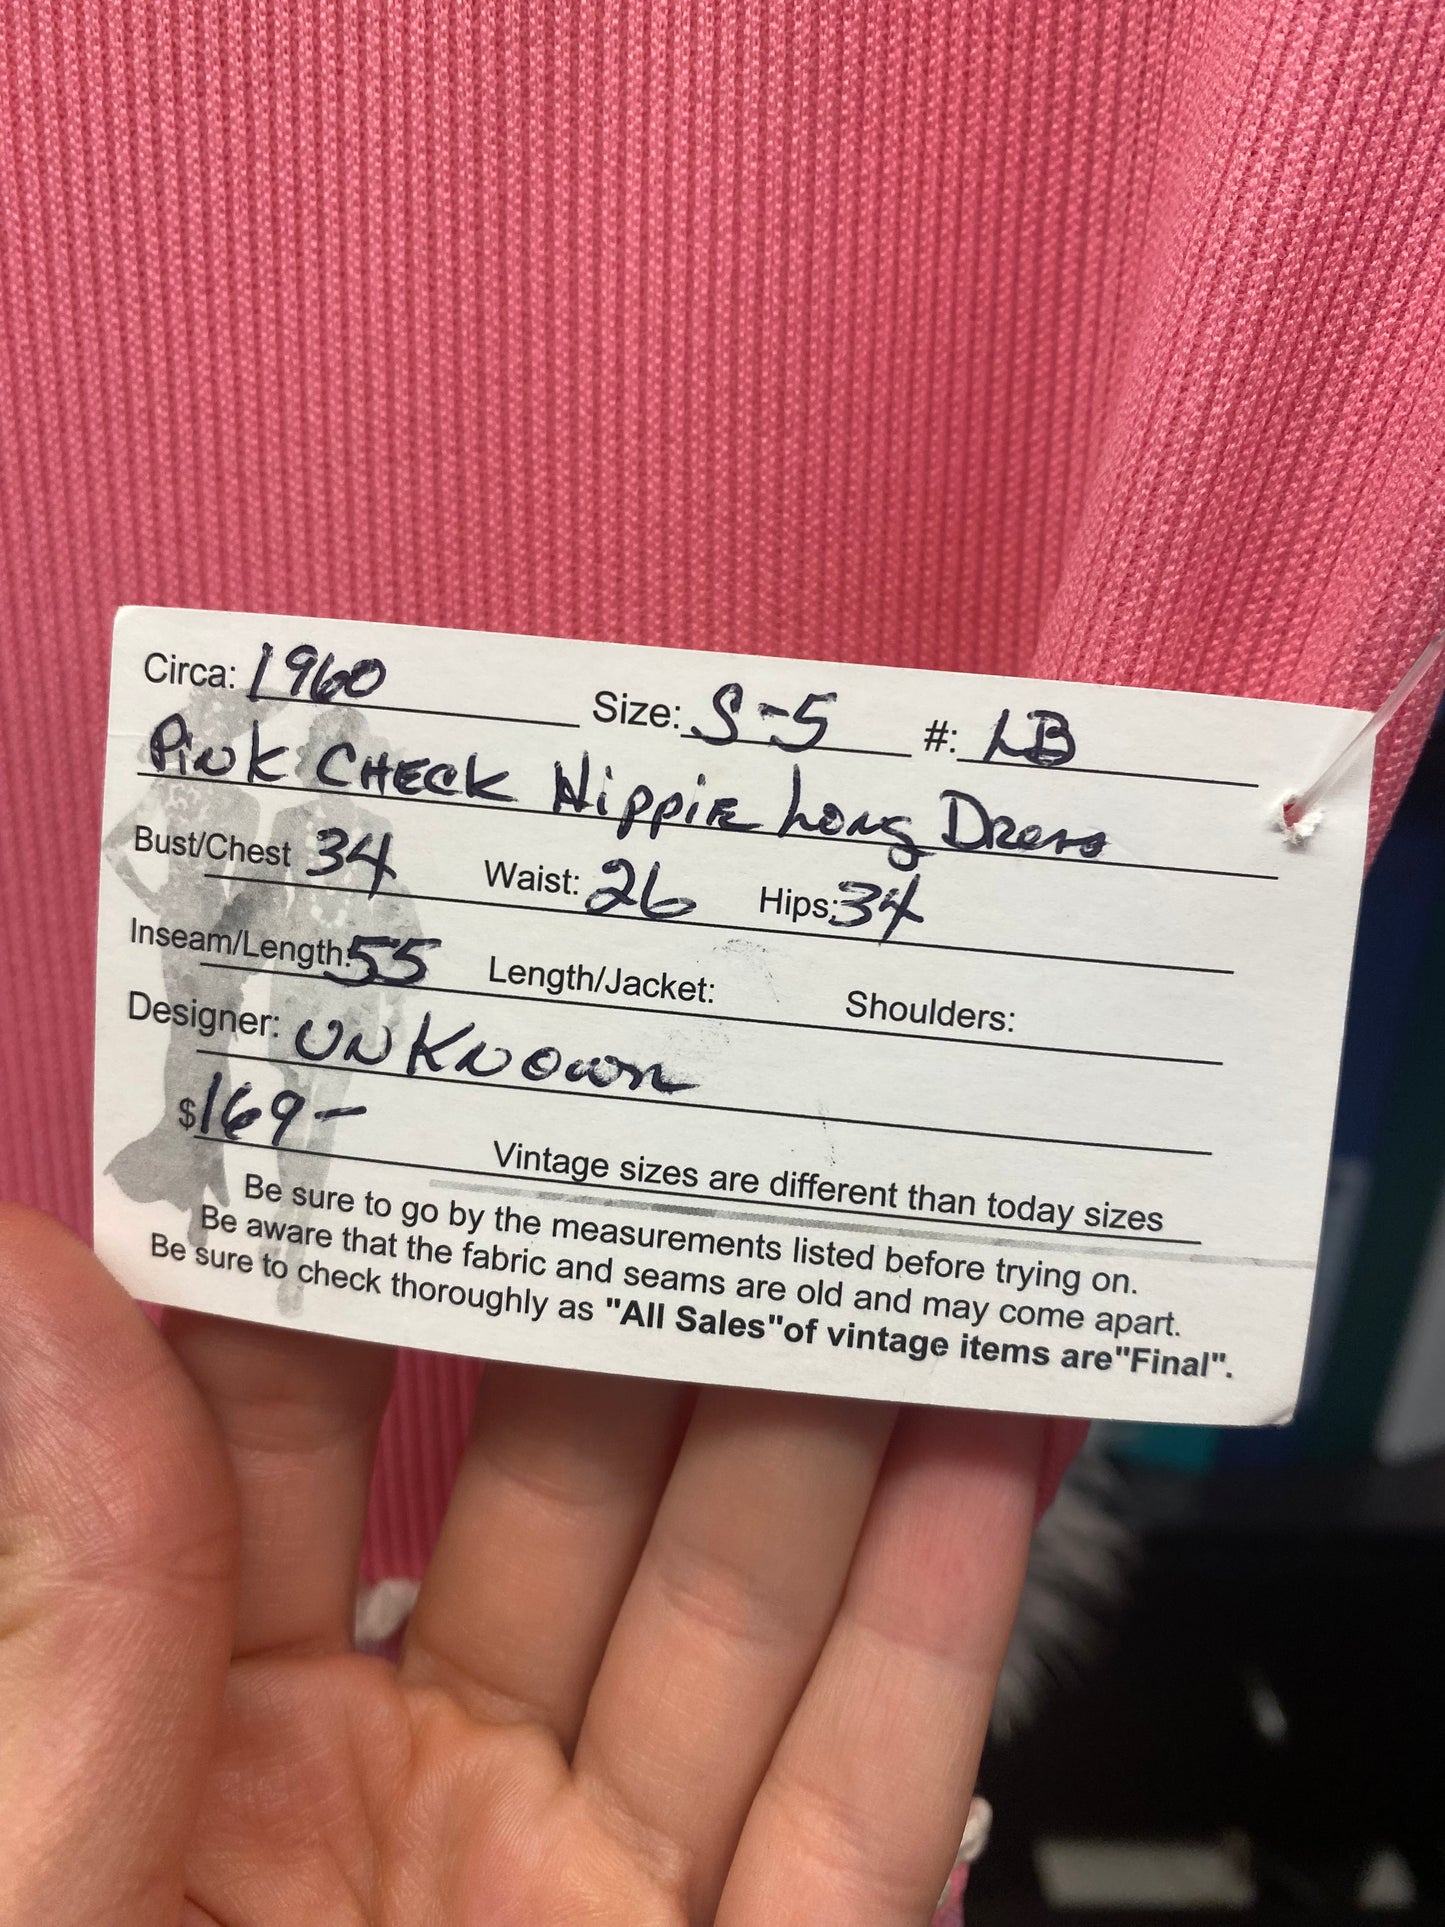 Circa: 1960 Size: S-5 #: LB
Pink CHECK Hippie Long Dress
Bust/Chest 34 Waist: 26 Hips: 34
Inseam/Length: 55 Length/Jacket: Shoulders:
Designer: UNKNOWN
$169- Vintage sizes are different than today sizes
Be sure to go by the measurements listed before trying on.
Be aware that the fabric and seams are old and may come apart.
Be sure to check thoroughly as "All Sales"of vintage items are"Final".